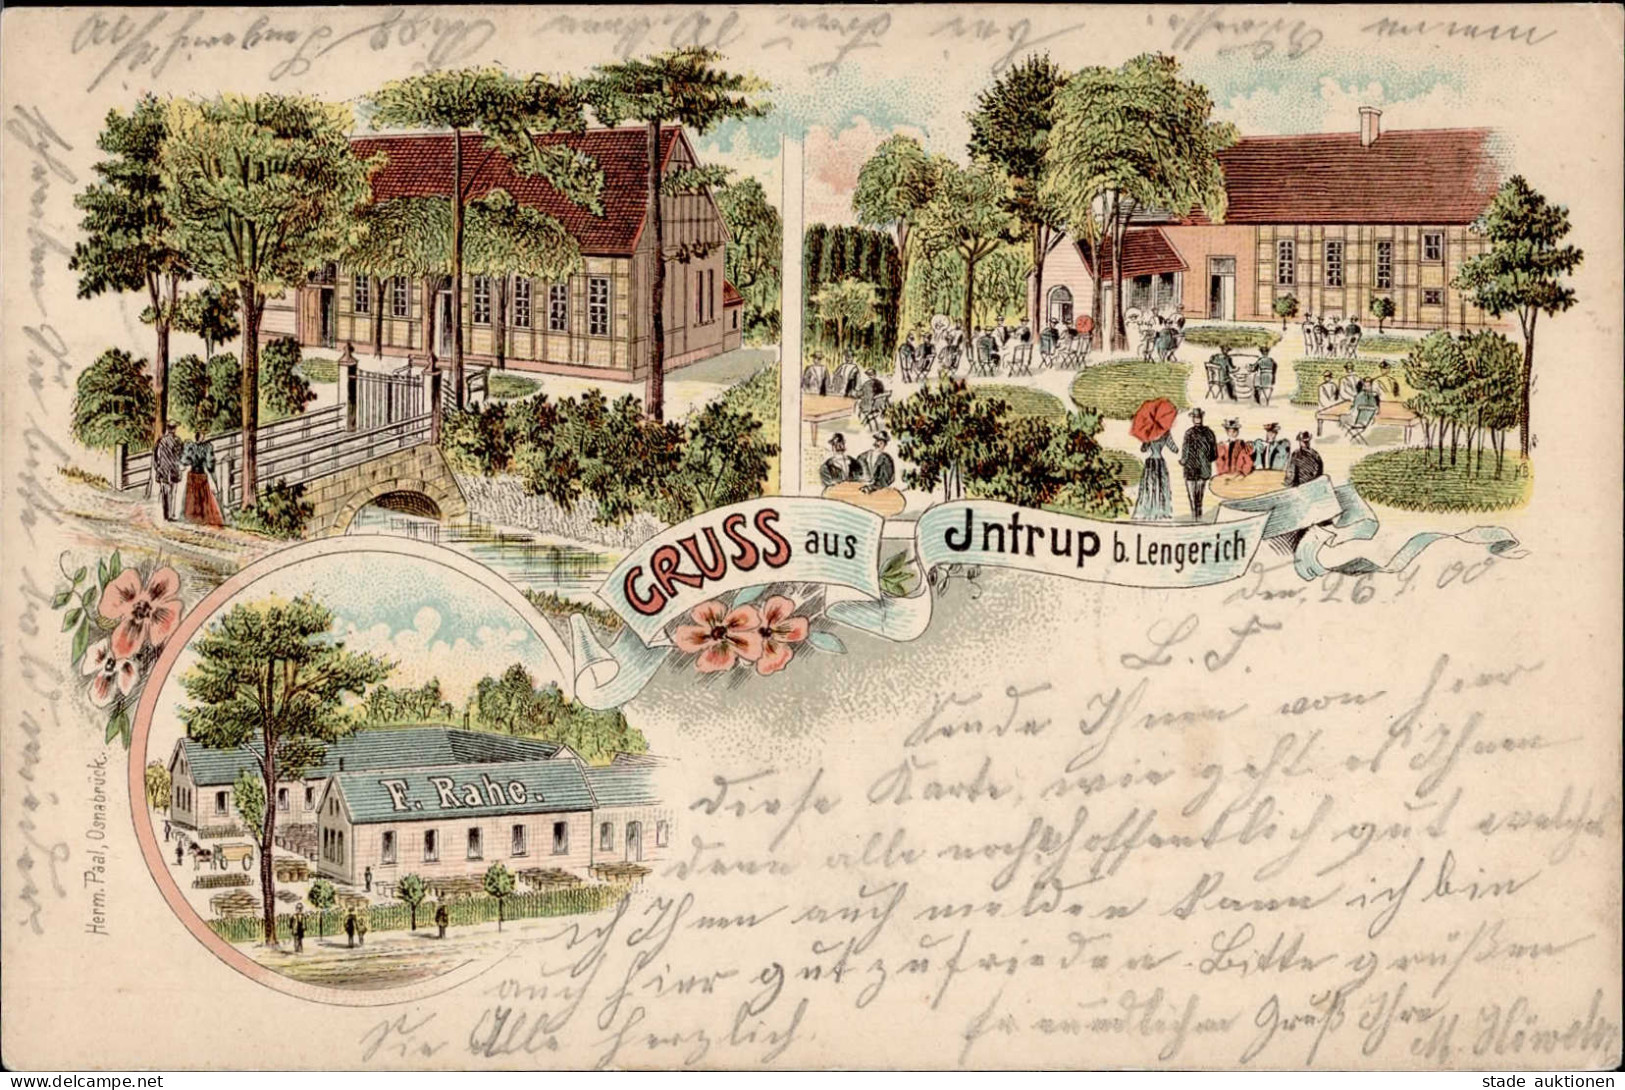 GRUSS aus Jntrup b. Lengerich
F. Rahe.
Herm. Paal, Osnabrück.
den, 26. 00.
L. F.
Sende Ihnen von hier
diese Karte, wie geht es Ihnen
denn alle noch hoffentlich gut welches
ich Ihnen auch melden kann ich bin
auch hier gut zufrieden. Bitte grüßen
Sie Alle herzlich. Freundlichen Gruß Ihre
M.
schreiben Sie bitte bald wieder
meiner bei
Lengerich
stade auktionen